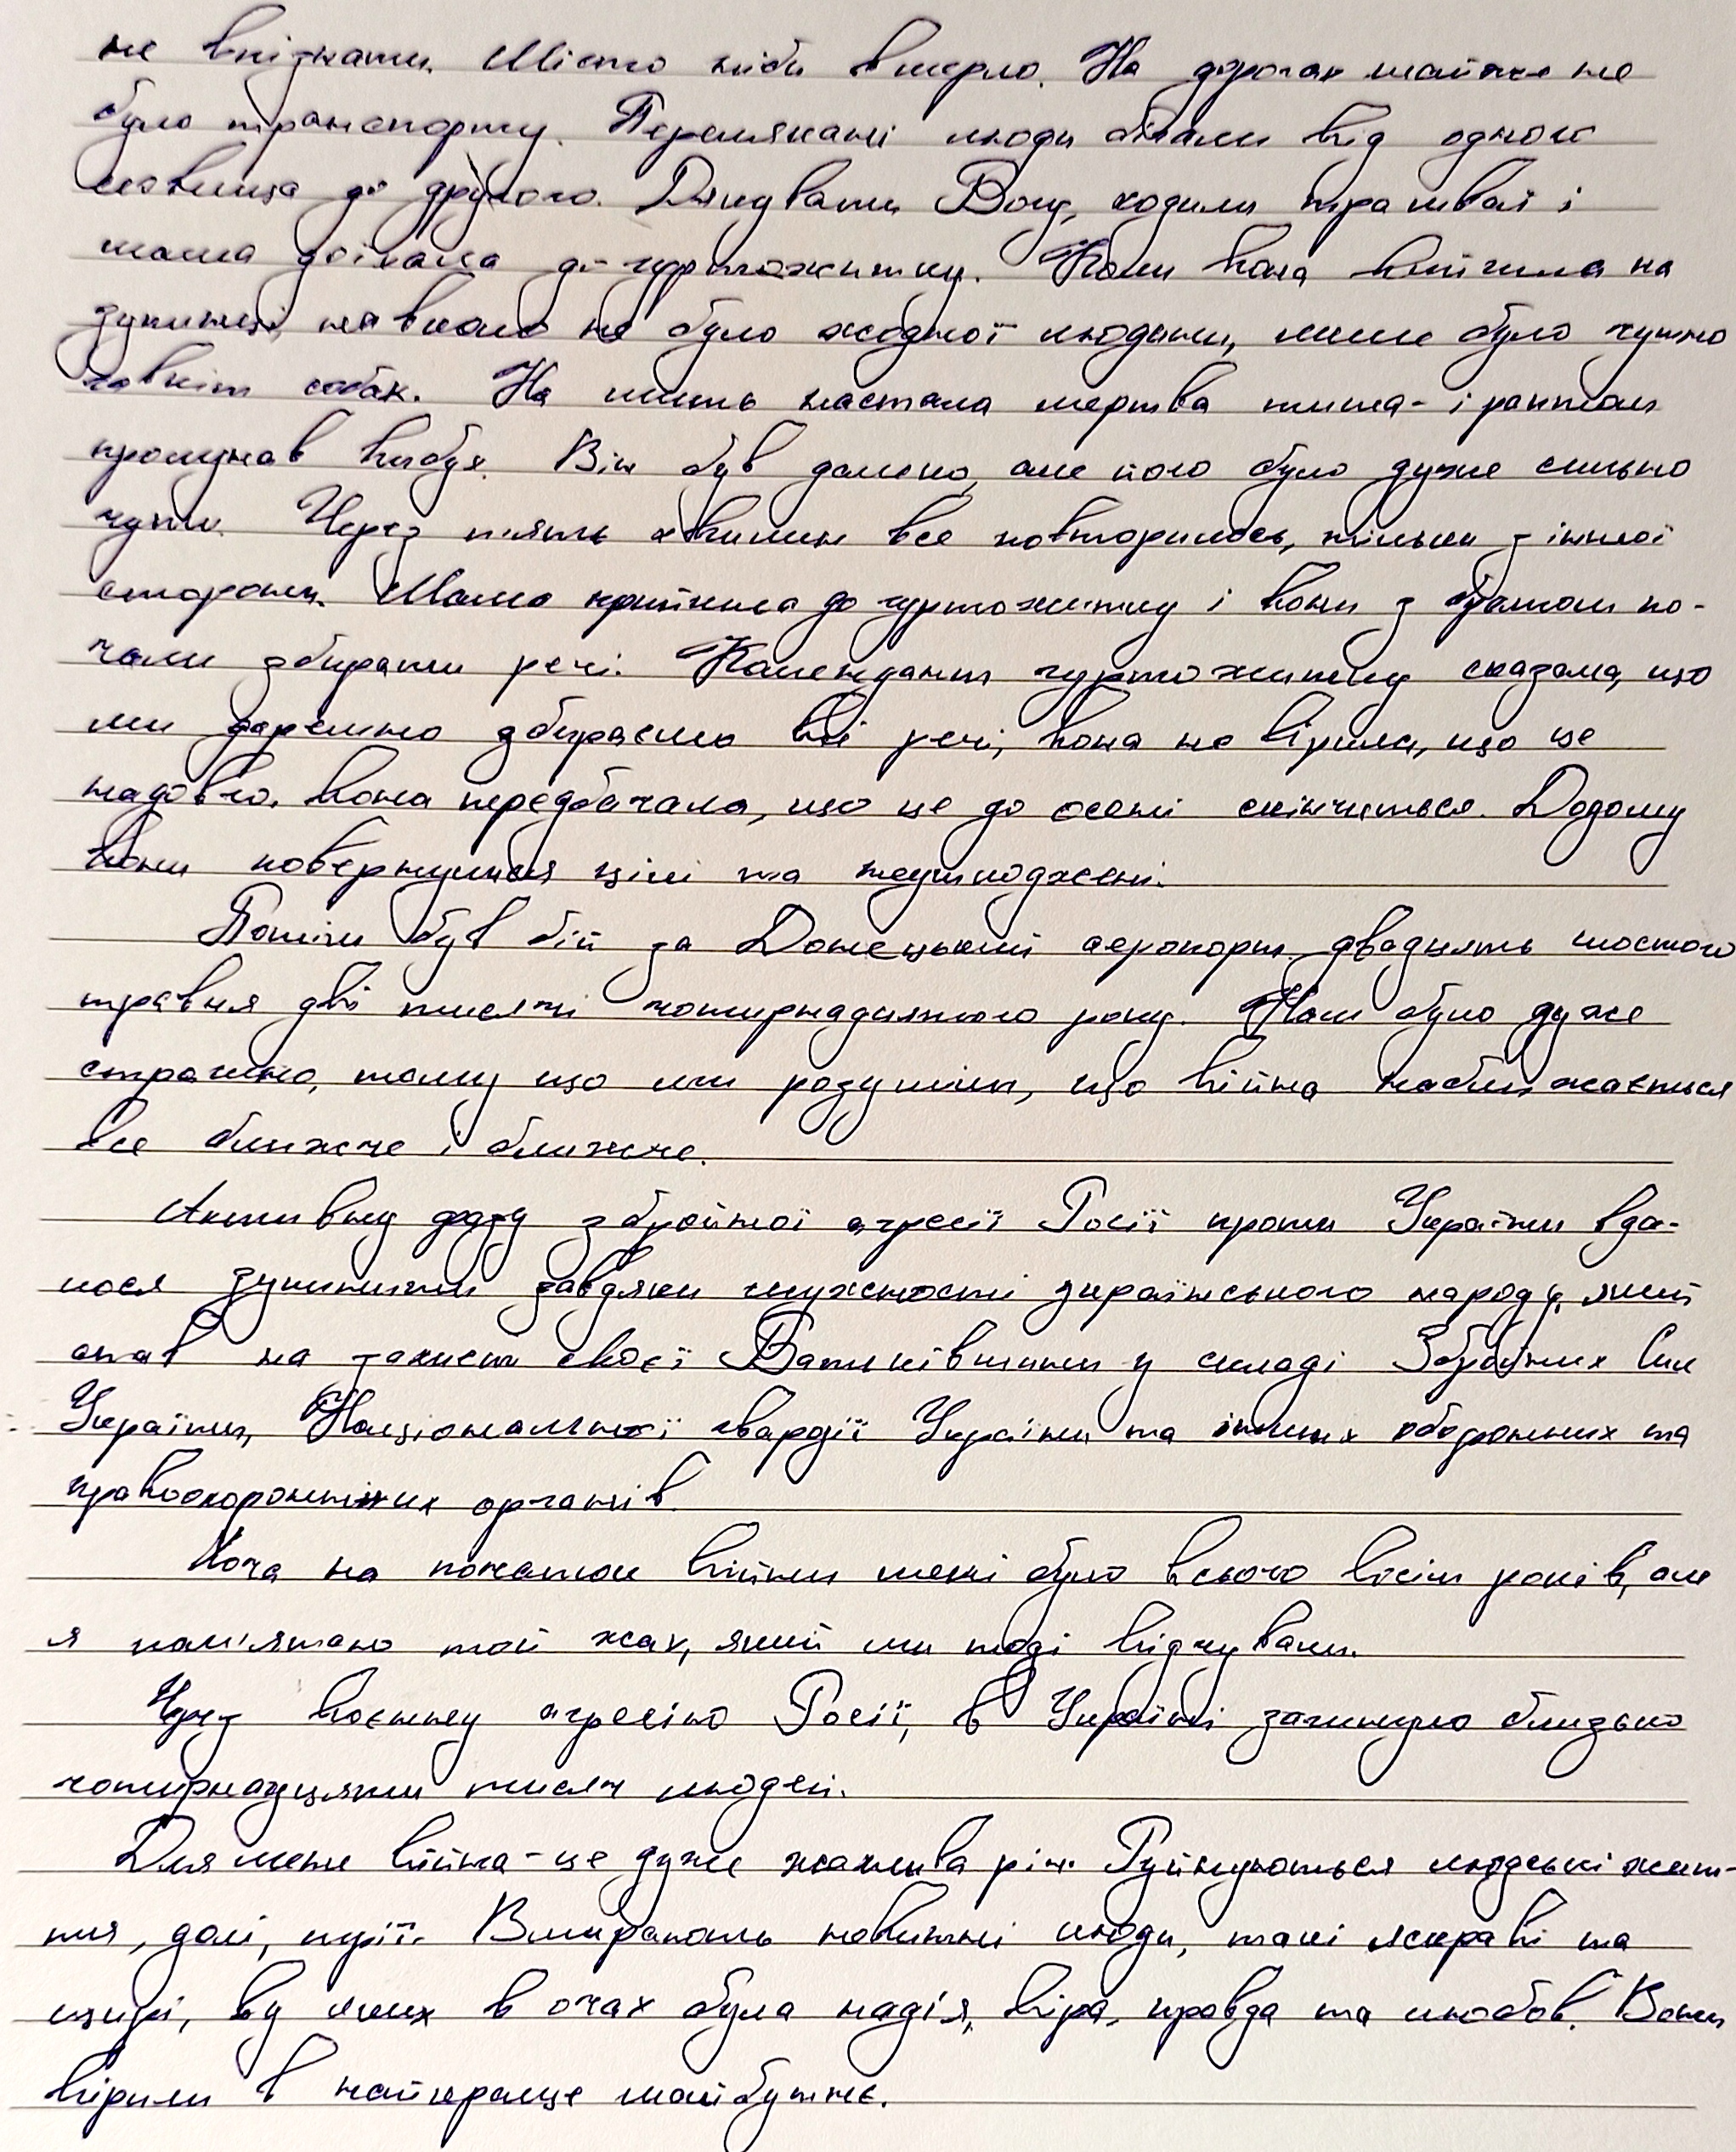 не впізнати. Місто ніби вмерло. На дорогах майже не
було транспорту. Перелякані люди бігали від одного
сховища до другого. Дякувати Богу, ходили трамваї і
мама доїхала до гуртожитку. Коли вона вийшла на
зупинці, навколо не було жодної людини, лише було чутно
гавкіт собак. На мить настала мертва тиша - і раптом
пролунав вибух. Він був далеко, але його було дуже сильно
чути. Через п'ять хвилин все повторилось, тільки з іншої
сторони. Мама прийшла до гуртожитку і вони з братом по-
чали збирати речі. Комендант гуртожитку сказала, що
ми даремно збираємо всі речі, вона не вірила, що це
надовго. Вона передбачала, що це до осені скінчиться. Додому
вони повернулися цілі та неушкоджені.
Потім був бій за Донецький аеропорт двадцять шостого
травня дві тисячі чотирнадцятого року. Нам було дуже
страшно, тому що ми розуміли, що війна наближається
все ближче і ближче.
Активну фазу збройної агресії Росії проти України вда-
лося зупинити завдяки мужності українського народу, який
став на захист своєї Батьківщини у складі Збройних Сил
України, Національної гвардії України та інших оборонних та
правоохоронних органів.
Хоча на початок війни мені було всього вісім років, але
я пам'ятаю той жах, який ми тоді відчували.
Через воєнну агресію Росії, в Україні загинуло близько
чотирнадцяти тисяч людей.
Для мене війна - це дуже жахлива річ. Руйнуються людські жит-
тя, долі, мрії. Вмирають невинні люди, такі яскраві та
щирі, в яких в очах була надія, віра, правда та любов. Вони
вірили в найкраще майбутнє.